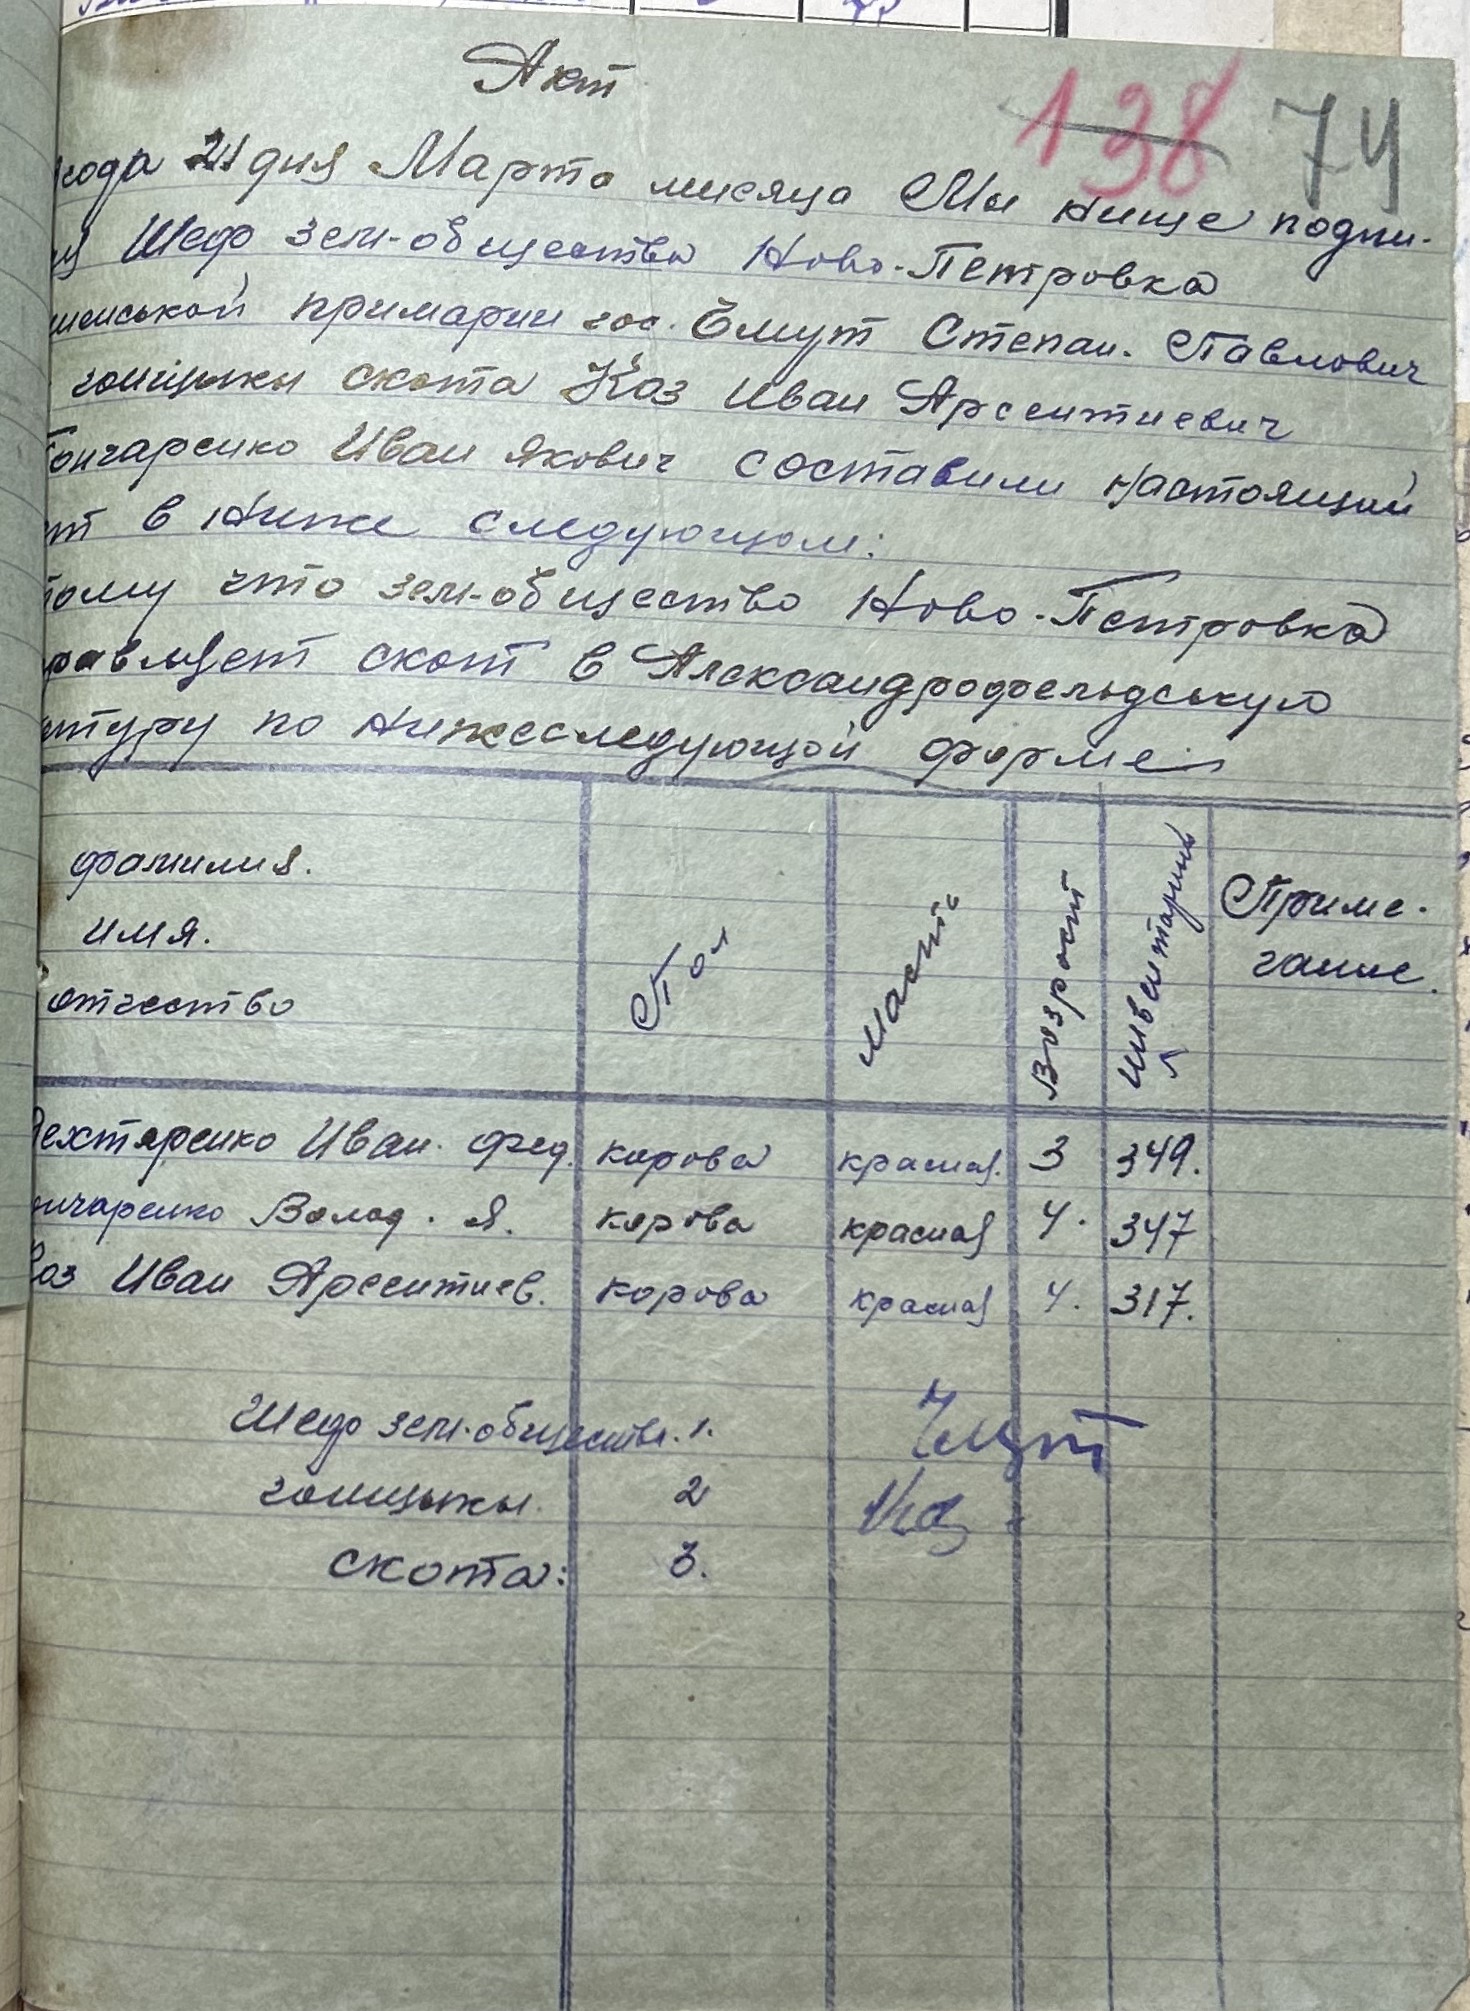 Акт
138 74
года 21 дня Марта мисяца Мы нище подпи-
Шеф зем-общества Ново-Петровка
примарии гос. Чмут Степан. Павлович
гонщыки скота Коз Иван Арсентиевич
Гончаренко Иван Якович составили настоящий
в Ниже следующом:
тому что зем-общество Ново-Петровка
равляет скот в Александрофельдськую
нтуру по Нижеследующой форме
фамилия.
имя.
отчество
Пол
масть
Возрост
инвентарнь
Приме-
чание.
Дехтяренко Иван. Фед. корова красная. 3 349.
нчаренко Волод. Я. корова красная 4. 347
Коз Иван Арсентиев. корова красная 4. 317.
Шеф зем-обществ. 1. Чмут
гонщыки. 2 Коз
скота: 3.